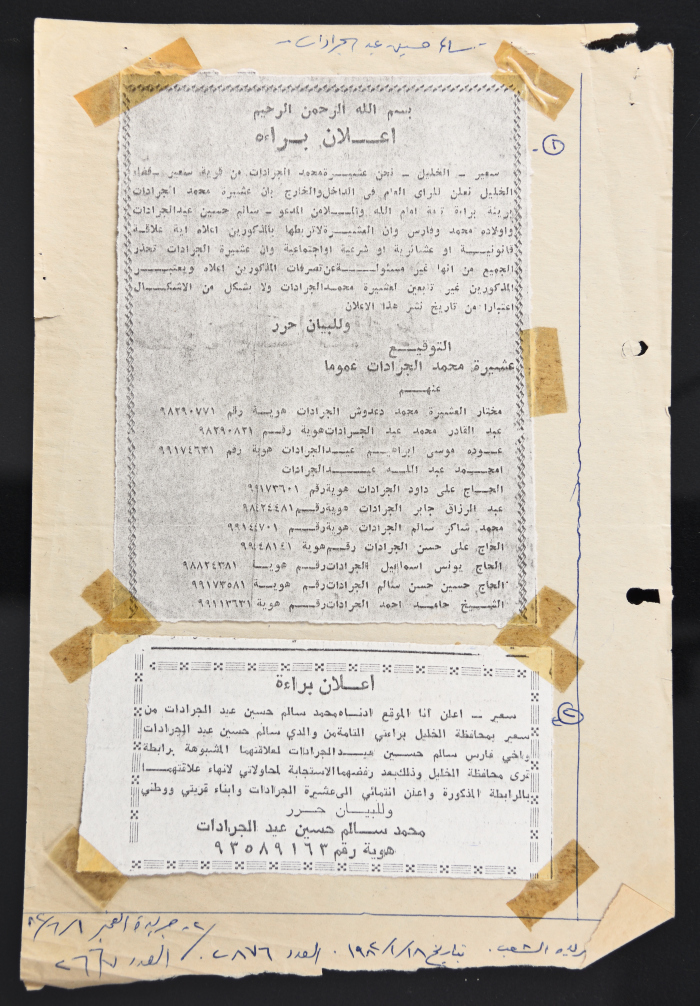 سالم حسين عبد الجرادات
١-
بسم الله الرحمن الرحيم
اعـــلان بـــراءه
سعير ــ الخليل ــ نحن عشيــرة محمد الجرادات من قرية سعير ـ قضاء
الخليل نعلن للراى العام فى الداخل والخارج بان عشيرة محمد الجرادات
بريئة براءة تامة امام الله والمــلا من المدعو ـ سالم حسين عبدالجرادات
واولاده محمد وفارس وان العشيــرة لاتربطها بالمذكورين اعلاه اية علاقة
قانونيــة او عشائرية او شرعية او اجتماعية وان عشيرة الجرادات تحذر
الجميع من انها غير مسئولـــة عن تصرفات المذكورين اعلاه ويعتبـــر
المذكورين غير تابعين لعشيرة محمد الجرادات ولا بشكل من الاشكـــال
اعتبارا من تاريخ نشر هذا الاعلان
وللبيان حرر
التوقيــع
عشيرة محمد الجرادات عموما
عنهـــم
مختار العشيرة محمد دعدوش الجرادات هويــة رقم ٩٨٢٩٠٧٧١
عبد القادر محمد عبد الجــرادات هوية رقــم ٩٨٢٩٠٨٣١
عــوده موسى ابراهــيم عبــد الجرادات هوية رقم ٩٩١٧٤٦٣١
امحمــد عبد اللــه عبـــد الجرادات
الحــاج على داود الجرادات هوية رقم ٩٩١٧٣٦٠١
عبد الرزاق جابر الجرادات هوية رقــم ٩٨٤٢٤٤٨١
محمد شاكر سالم الجرادات هوية رقــم ٩٩١٤٤٧٠١
الحاج على حسن الجرادات رقــم هوية ٩٩٤٤٨١٤١
الحاج يونس اسماعيل الجرادات رقــم هويــة ٩٨٨٢٤٣٨١
الحاج حسين حسن سالم الجرادات رقــم هويــة ٩٩١٧٣٥٨١
الشيــخ حامــد احمد الجرادات رقــم هوية ٩٩١١٣٦٣١
٢
اعــلان براءة
سعير ــ اعلن انا الموقع ادنــاه محمد سالم حسين عبد الجرادات من
سعير بمحافظة الخليل براءتي التامة من والدي سالم حسين عبد الجرادات
واخي فارس سالم حســين عبــد الجرادات لعلاقتهما المشبوهة برابطة
قرى محافظة الخليل وذلك بعد رفضهما الاستجابة لمحاولاتي لانهاء علاقتهمــا
بالرابطة المذكورة واعلن انتمائي الى عشيرة الجرادات وابناء قريتي ووطني
وللبيــان حــرر
محمد ســالم حسين عبد الجرادات
هوية رقم ٩٣٥٨٩١٦٣
جريدة الشعب . بتاريخ ١٩٨٢/١/١٨ . العدد ٢٨٧٦ .
٢- جريدة الفجر ٨٢/٦/١
العدد ٢٦٦٧